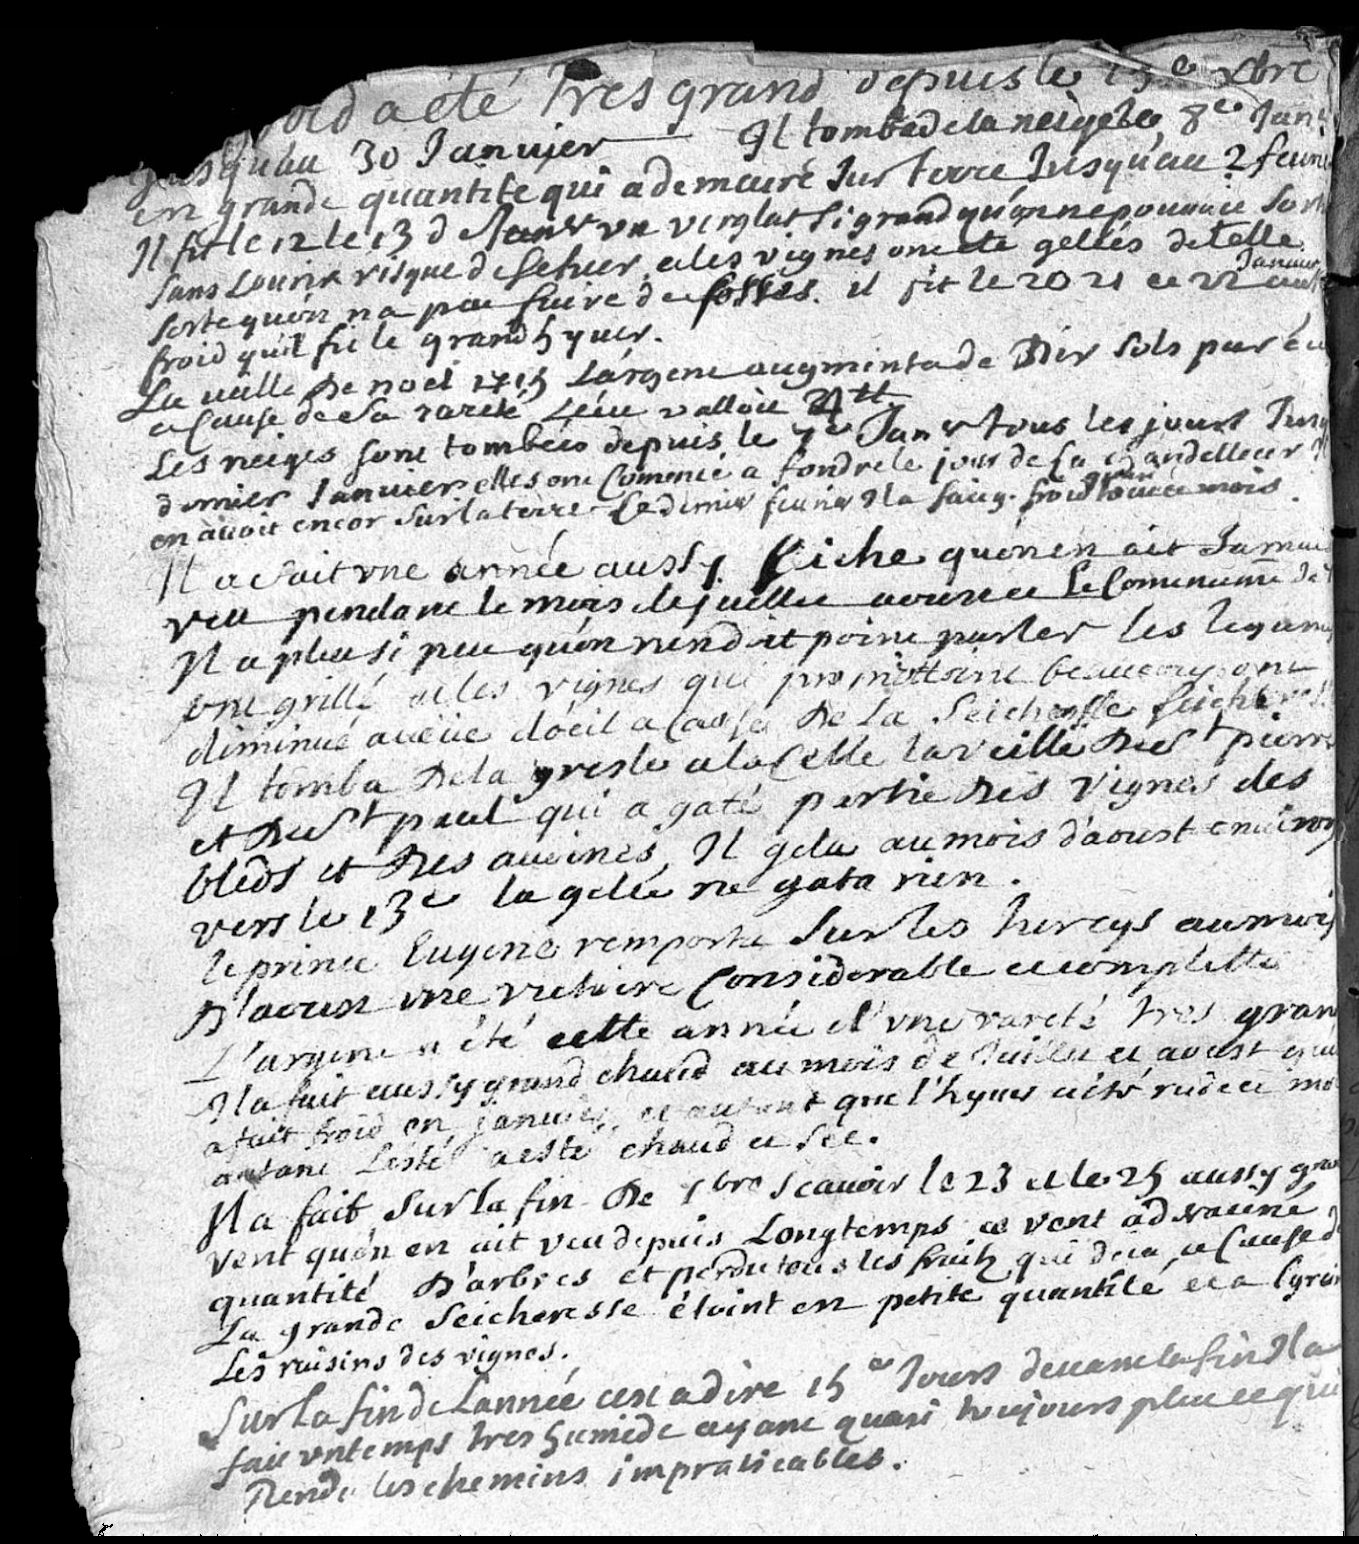 oid a eté tres grand depuis le 15e xbre
Jusquau 30 Janvier Il tomba de la neige le 8e Janv
en grande quantité qui a demeuré sur terre Jusquau 2 feuri
Il fit le 12 le 13 d un verglat si grand qu'on ne pouuoit sort
sans courir risque de se tuer, et les vignes ont ete gellés de telle
sorte quon na peu fuire de fosses. il fit le 20 21 et 22 Januier aut
froid quil fit le grand hyuer.
La veille de noel 1715 L'argent augmenta de Dix sols par écu
a Cause de sa rareté Lécu valloit 4tt
Les neiges sont tombées depuis le 7e Janvr tous les jours Jusq
dernier Januier elles ont Commencé a fondre le jour de la chandelleur
en auoit encor sur la terre le dernier feurier Il a fait froid tout ce mois.
Il a fait une année aussy seiche quon en ait Jamais
veu pendant le mois de juillet aoust et le Commencemt de
Il a pleu si peu quon nendoit point parler les legumes
ont grillé et les vignes qui promettoint beaucoup ont
diminué a veüe d'oeil a Cause De La Seicheresse
Il tomba De la gresle a la Celle la veille De St pierre
et De St paul qui a gaté partie Des vignes des
bleds et Des auoines, Il gela au mois d'aoust enuiron
vers le 13e la gelée ne gata rien.
le prince Eugene remporta sur les turcqs au mois
D'aoust une victoire Considerable et complette
L'argent a été cette année d'une rareté tres gran
Il a fait aussy grand chaud au mois de Juillet et aoust qu'il
a fait froid en januier, et autant que l'hyuer a eté rude et
autant Lesté a esté chaud et sec.
Il a fait sur la fin De 7bre scauoir le 23 et le 25 aussy gra
vent quon en ait veu depuis Longtemps ce vent a deraciné
quantité D'arbres et perdu tous les fruits qui deia a Cause d
La grande seicheresse étoint en petite quantité et a
Les raisins des vignes.
Sur la fin de Lannée cest a dire 15e Jours deuant la fin Il a
fait un temps tres humide ayant quasi toujours pleu ce qui
Rend les chemins impraticables.